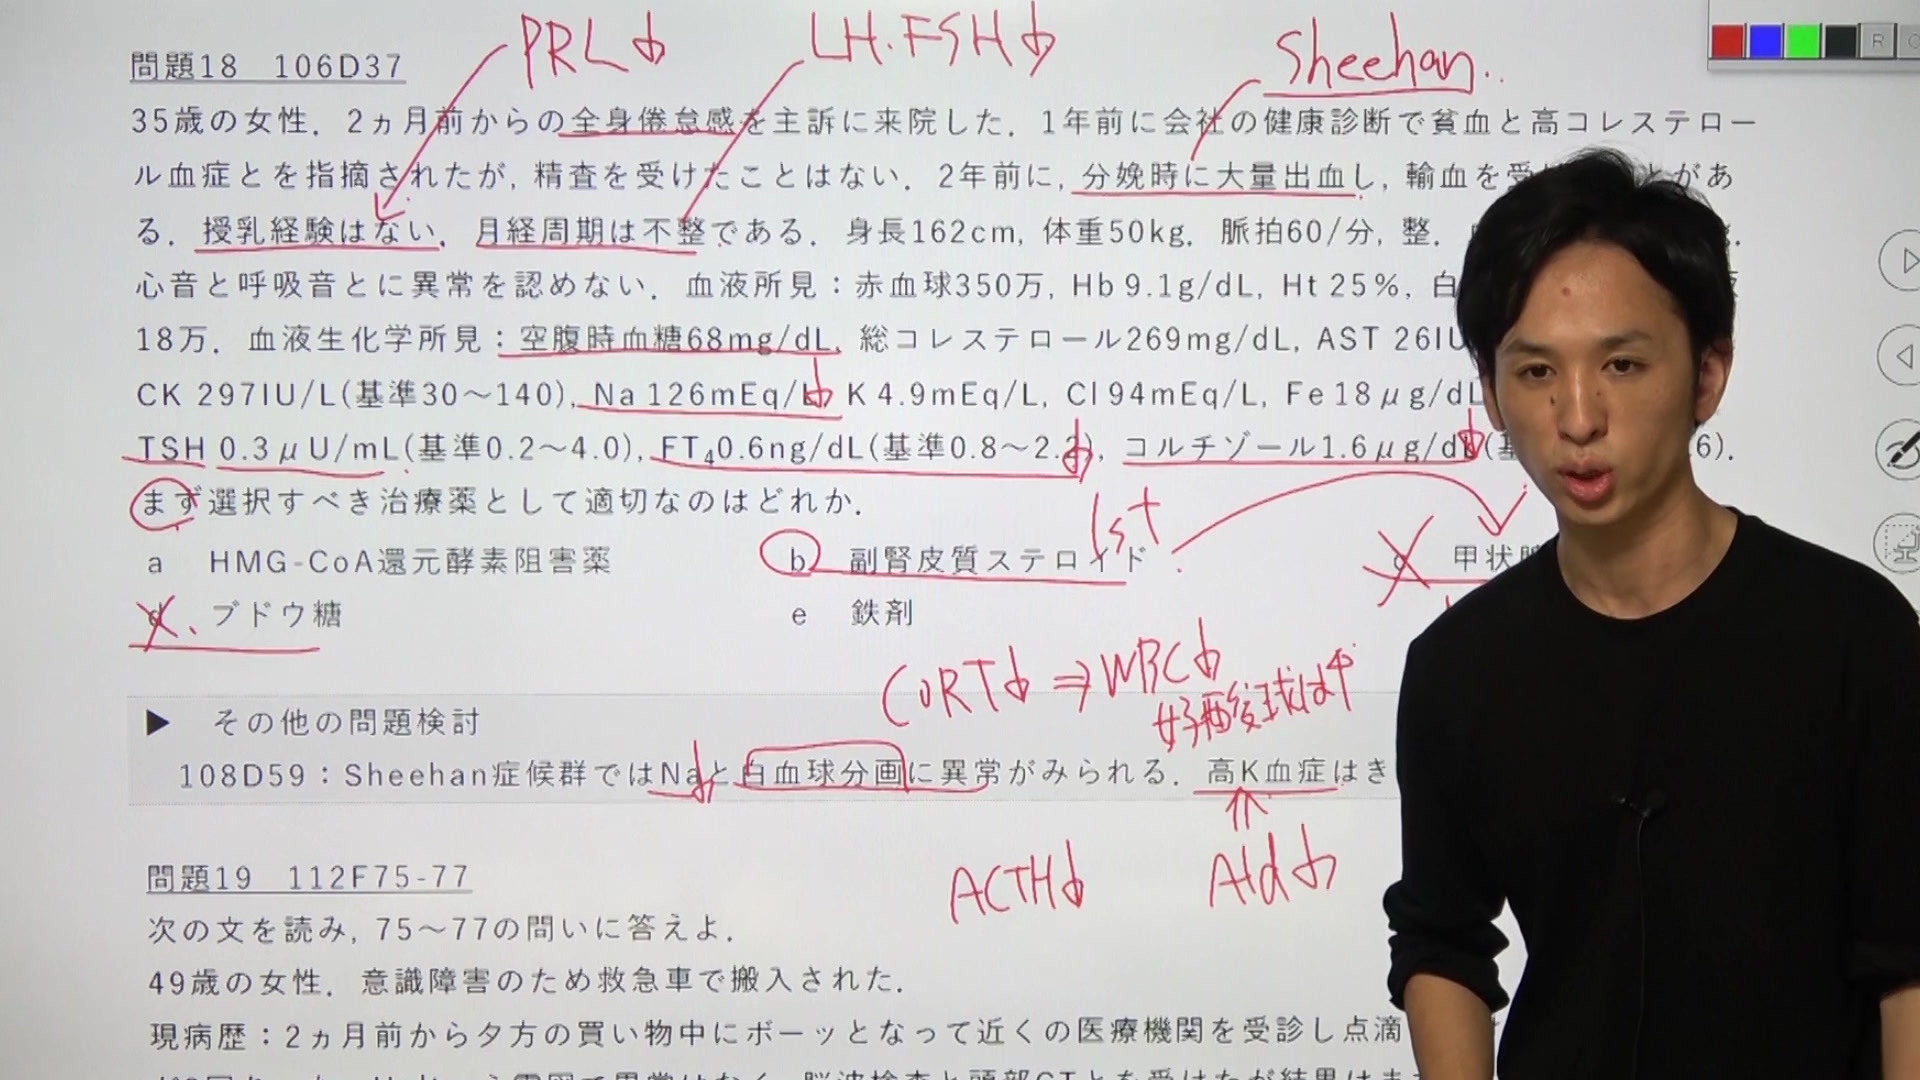 PRL↓ LH.FSH↓ Sheehan..
問題18 106D37
35歳の女性．2ヵ月前からの全身倦怠感を主訴に来院した．1年前に会社の健康診断で貧血と高コレステロー
ル血症とを指摘されたが，精査を受けたことはない．2年前に，分娩時に大量出血し，輸血を受 とがあ
る．授乳経験はない．月経周期は不整である．身長162cm，体重50kg．脈拍60/分，整．
心音と呼吸音とに異常を認めない．血液所見：赤血球350万，Hb 9.1g/dL，Ht 25%，白
18万．血液生化学所見：空腹時血糖68mg/dL，総コレステロール269mg/dL，AST 26IU
CK 297IU/L(基準30～140)，Na 126mEq/L↓ K 4.9mEq/L，Cl 94mEq/L，Fe 18μg/dL
TSH 0.3μU/mL(基準0.2～4.0)，FT₄0.6ng/dL(基準0.8～2.2)↓，コルチゾール1.6μg/dL↓(基 6)．
まず選択すべき治療薬として適切なのはどれか．
1st
a HMG-CoA還元酵素阻害薬 b 副腎皮質ステロイド c 甲状
d ブドウ糖 e 鉄剤
CORT↓ ⇒ WBC↓
好酸球は↑
▶ その他の問題検討
108D59：Sheehan症候群ではNa↓と白血球分画に異常がみられる．高K血症はき
ACTH↓ Ald↓
問題19 112F75-77
次の文を読み，75～77の問いに答えよ．
49歳の女性．意識障害のため救急車で搬入された．
現病歴：2ヵ月前から夕方の買い物中にボーッとなって近くの医療機関を受診し点滴